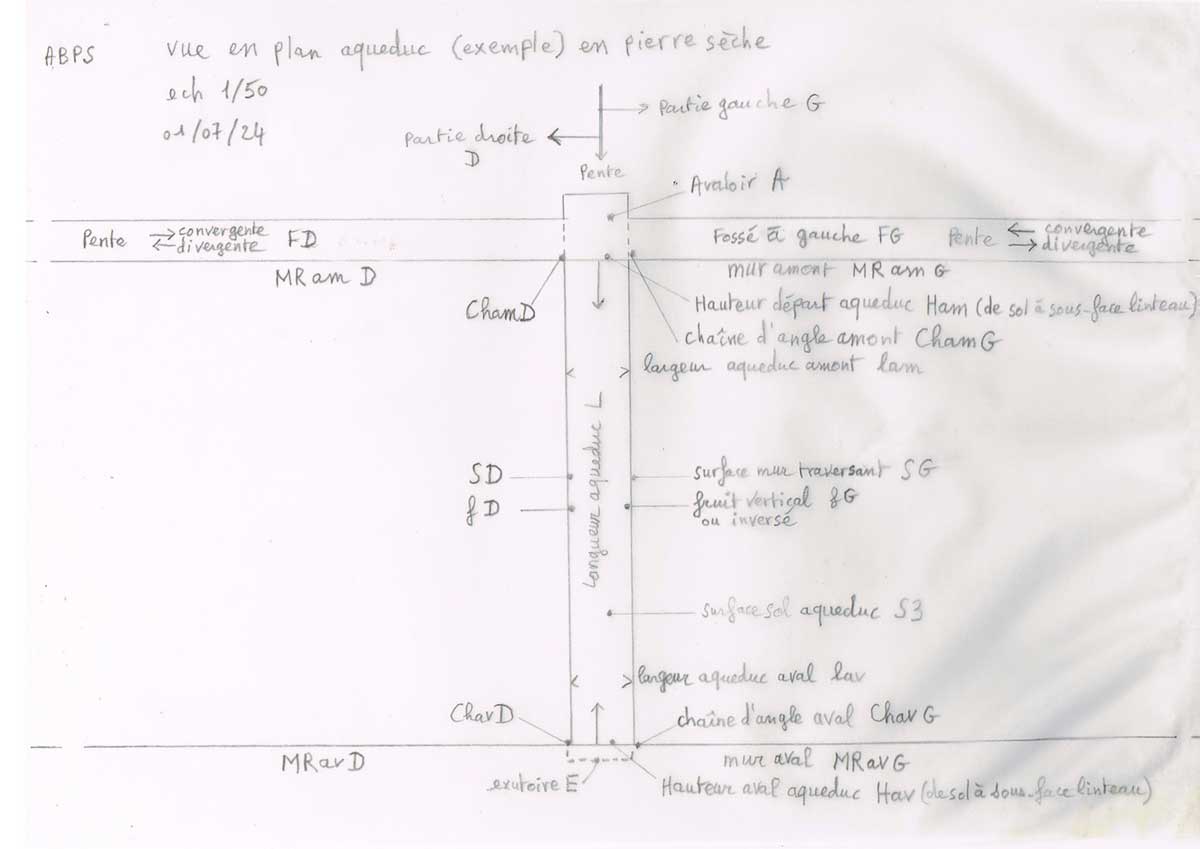 ABPS
vue en plan aqueduc (exemple) en pierre sèche
ech 1/50
01/07/24
Partie gauche G
Partie droite
D
Pente
Avaloir A
Pente → convergente FD
← divergente
Fossé à gauche FG Pente ← convergente
→ divergente
MRam D
mur amont MRam G
ChamD
Hauteur départ aqueduc Ham (de sol à sous-face linteau)
chaîne d'angle amont ChamG
largeur aqueduc amont lam
Longueur aqueduc L
SD
surface mur traversant SG
fD
fruit vertical fG
ou inversé
surface sol aqueduc S3
largeur aqueduc aval lav
ChavD
chaîne d'angle aval Chav G
MRavD
mur aval MRavG
exutoire E
Hauteur aval aqueduc Hav (de sol à sous-face linteau)